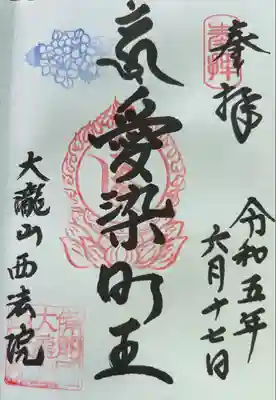 奉拝
令和五年
六月十七日
愛染明王
大瀧山西法院